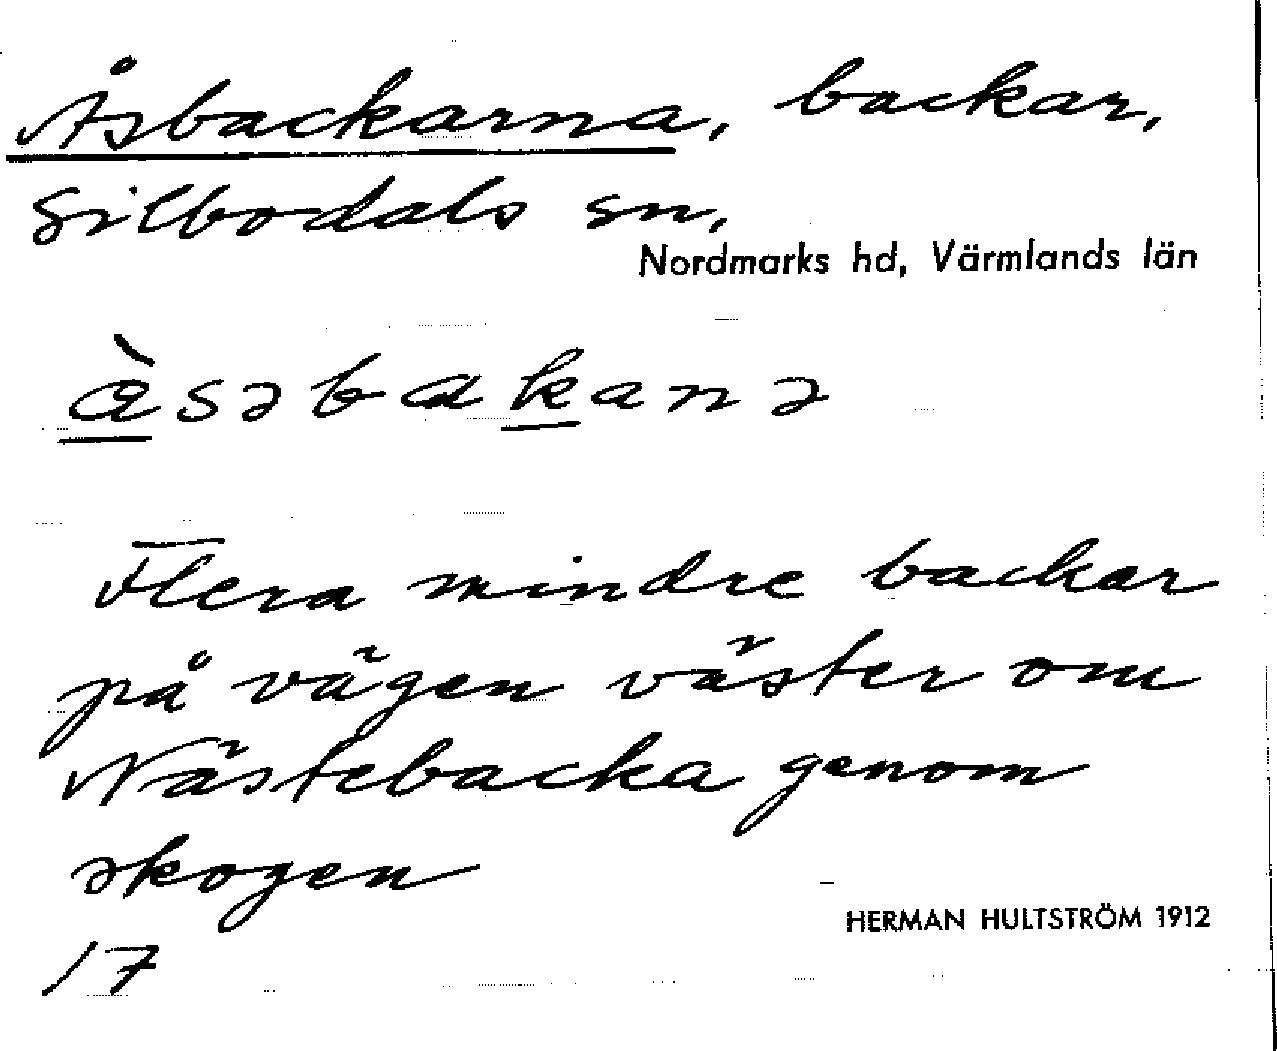 Åsbackarna, backar,
Silbodals sn,
Nordmarks hd, Värmlands län
àsəbakanə
Flera mindre backar
på vägen väster om
Nästebacka genom
skogen
HERMAN HULTSTRÖM 1912
17